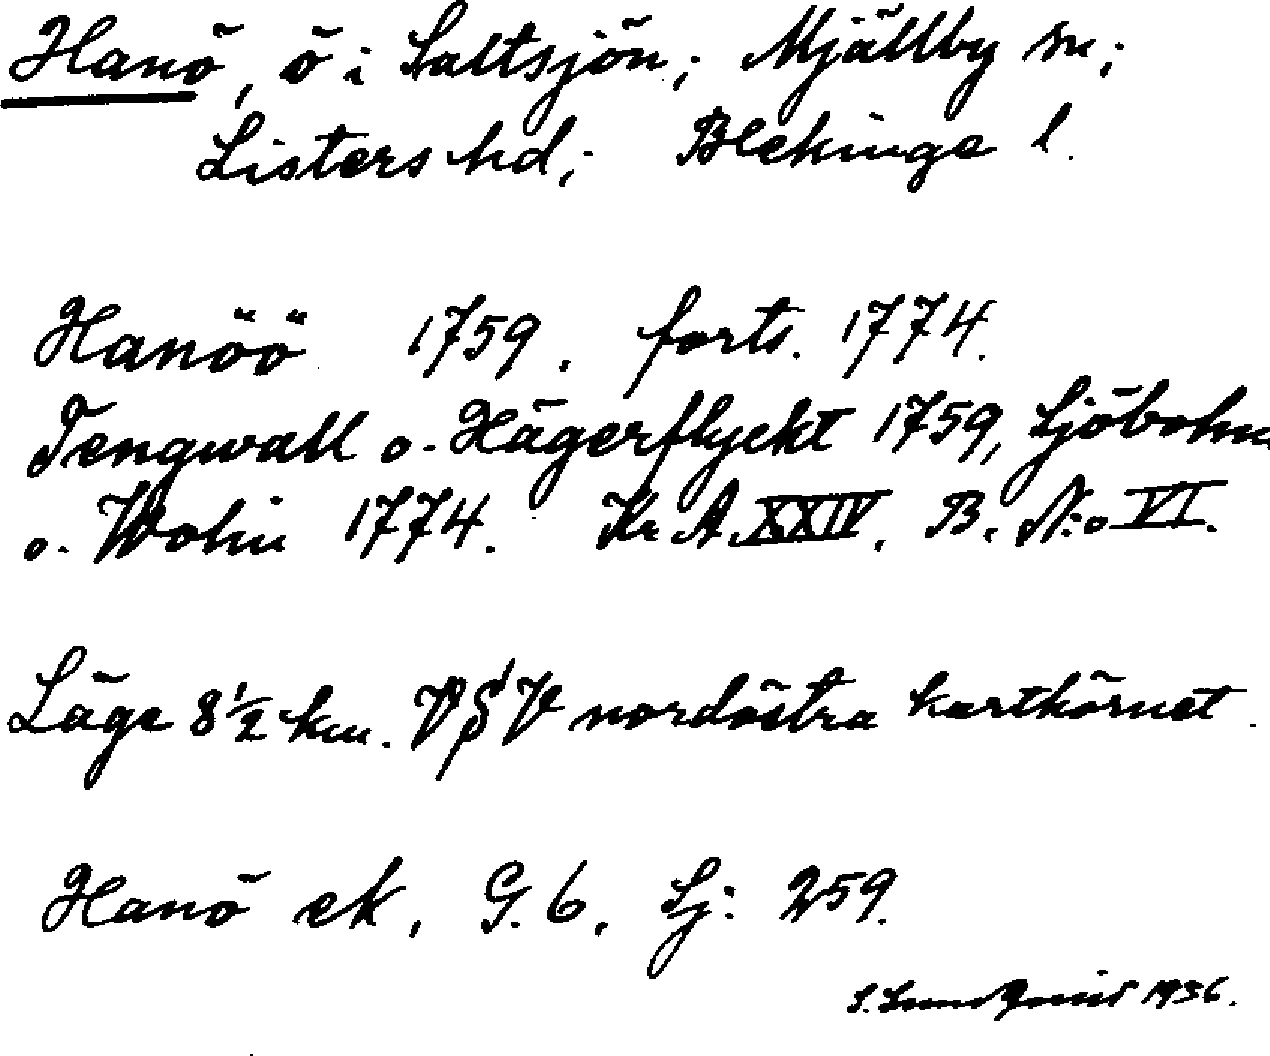 Hanö, ö i Saltsjön; Mjällby sn;
Listers hd; Blekinge l.
Hanöö 1759. forts. 1774.
Tengwall o. Hägerflyckt 1759, Sjöbohm
o. Wohn 1774. Kr A. XXIV. B. N:o VI.
Läge 8 1/2 km. VSV nordöstra karthörnet.
Hanö ek, G. 6. Sj: 259.
S. Lundquist 1936.